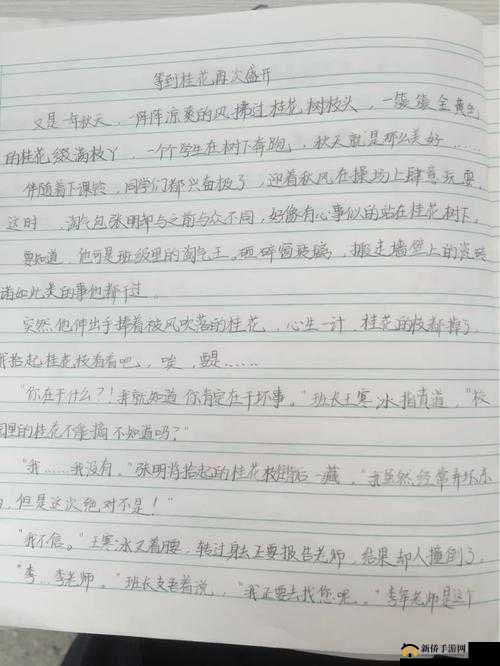 等到桂花再次盛开
又是一年秋天,一阵阵凉爽的风拂过桂花树枝头,一簇簇金黄色
的桂花缀满枝丫,一个个学生在树下奔跑,秋天就是那么美好……
伴随着下课铃,同学们都兴奋极了,迎着秋风在操场上肆意玩耍,
这时,淘气包张明却与之前与众不同,好像有心事似的站在桂花树下,
要知道,他可是班级里的淘气王。砸碎窗玻璃,搬走墙壁上的瓷砖
诸如此类的事他都干过。
突然他伸出手捧着被风吹落的桂花,心生一计,桂花的枝都掉了,
我拾起桂花枝看看吧,唉,要是……
"你在干什么?!我就知道你肯定在干坏事。"班长王寒冰指责道,"校
园里的桂花不能摘不知道吗?"
"我……我没有。"张明将拾起的桂花枝背后一藏,"我虽然经常弄坏东
,但是这次绝对不是!"
"我不信。"王寒冰叉着腰,转过身去正要报告老师,结果却人撞倒了
"李…李老师。"班长支吾着说,"我正要去找您呢。"李军老师是这个
新侨手游网